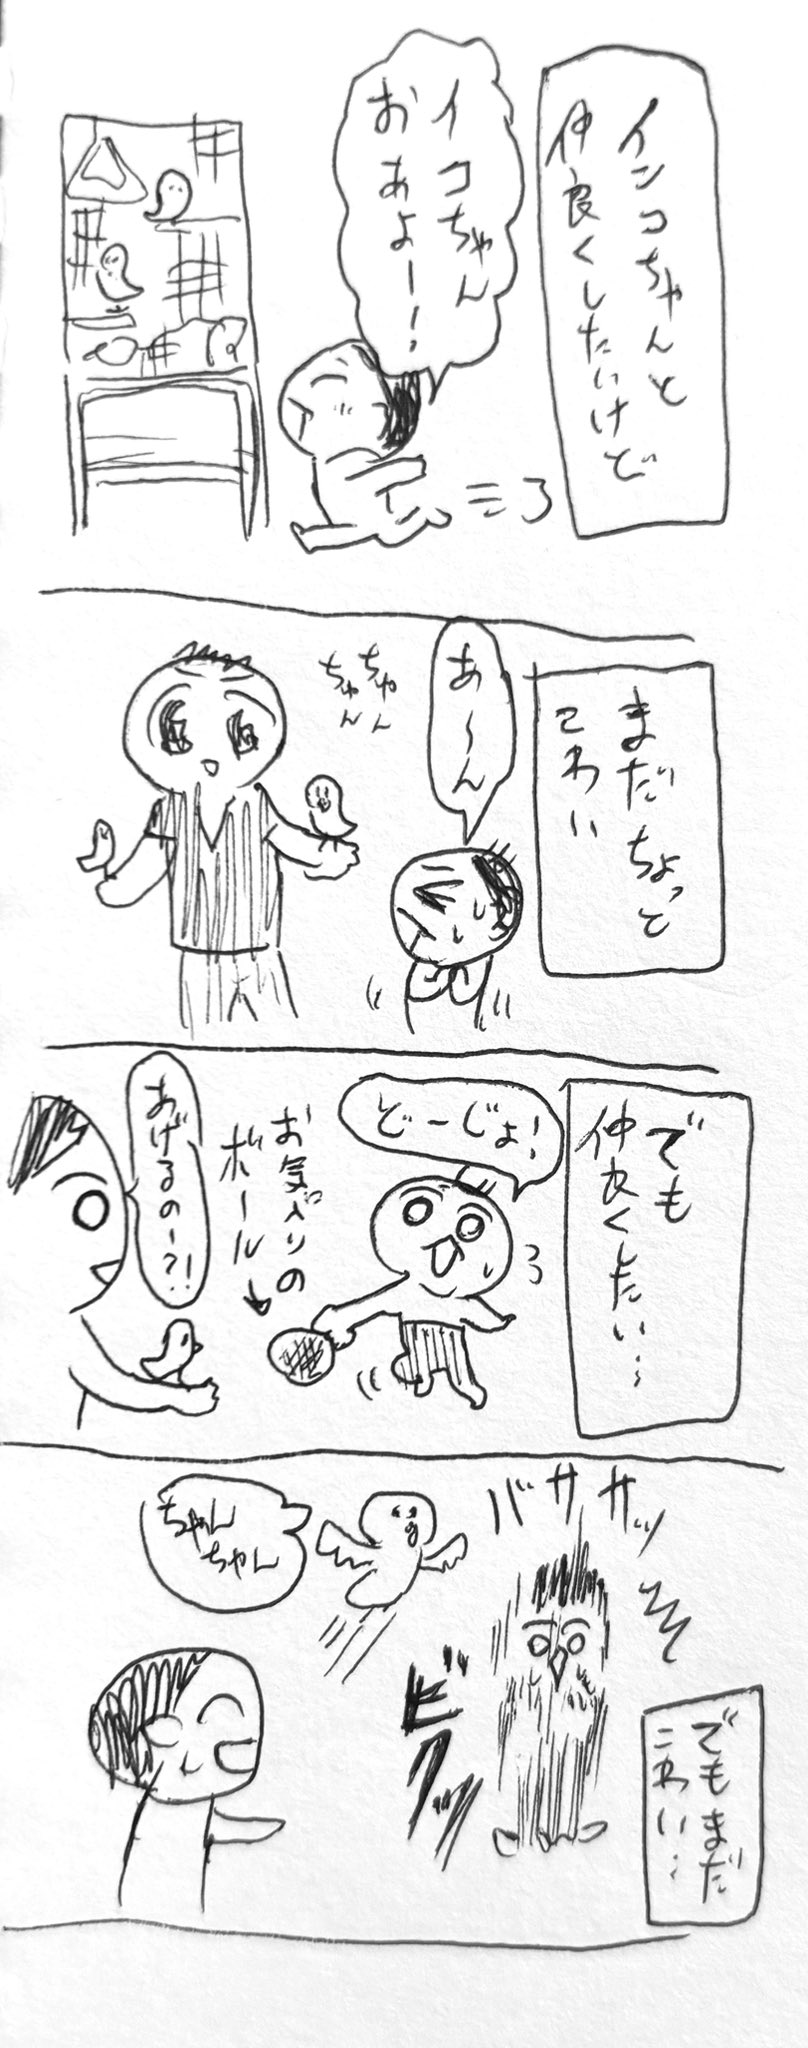 インコちゃんと
仲良くしたいけど
イコちゃん
おあよー!
まだちょっと
こわい
あ〜ん
ちゃん
ちゃん
でも
仲良くしたい…
どーじょ!
お気に入りの
ボール
あげるのー?!
バササッ
ちゃん
ちゃん
ビクッ
でもまだ
こわい…